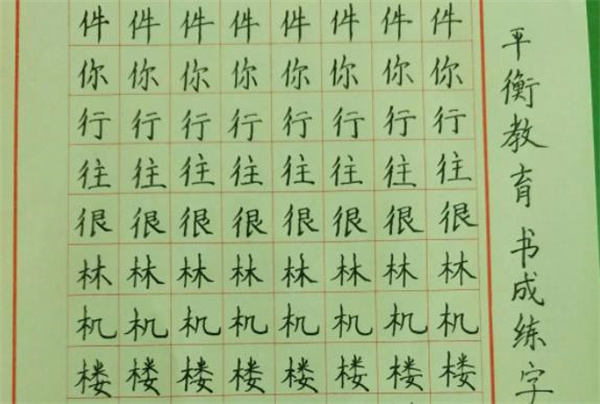 件件件件件件件件
你你你你你你你你
行行行行行行行行
往往往往往往往往
很很很很很很很很
林林林林林林林林
机机机机机机机机
楼楼楼楼楼楼楼楼
平衡教育书成练字